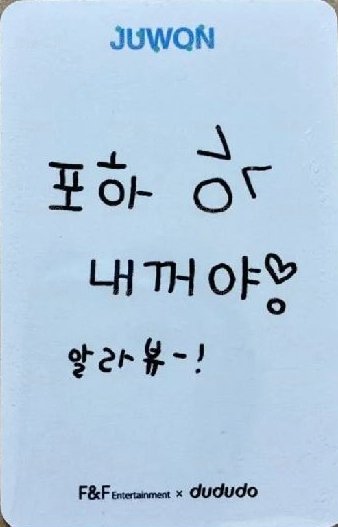 JUWON
포하 >ㅇ<
내꺼야♡
알라뷰~!
F&F Entertainment × dududo